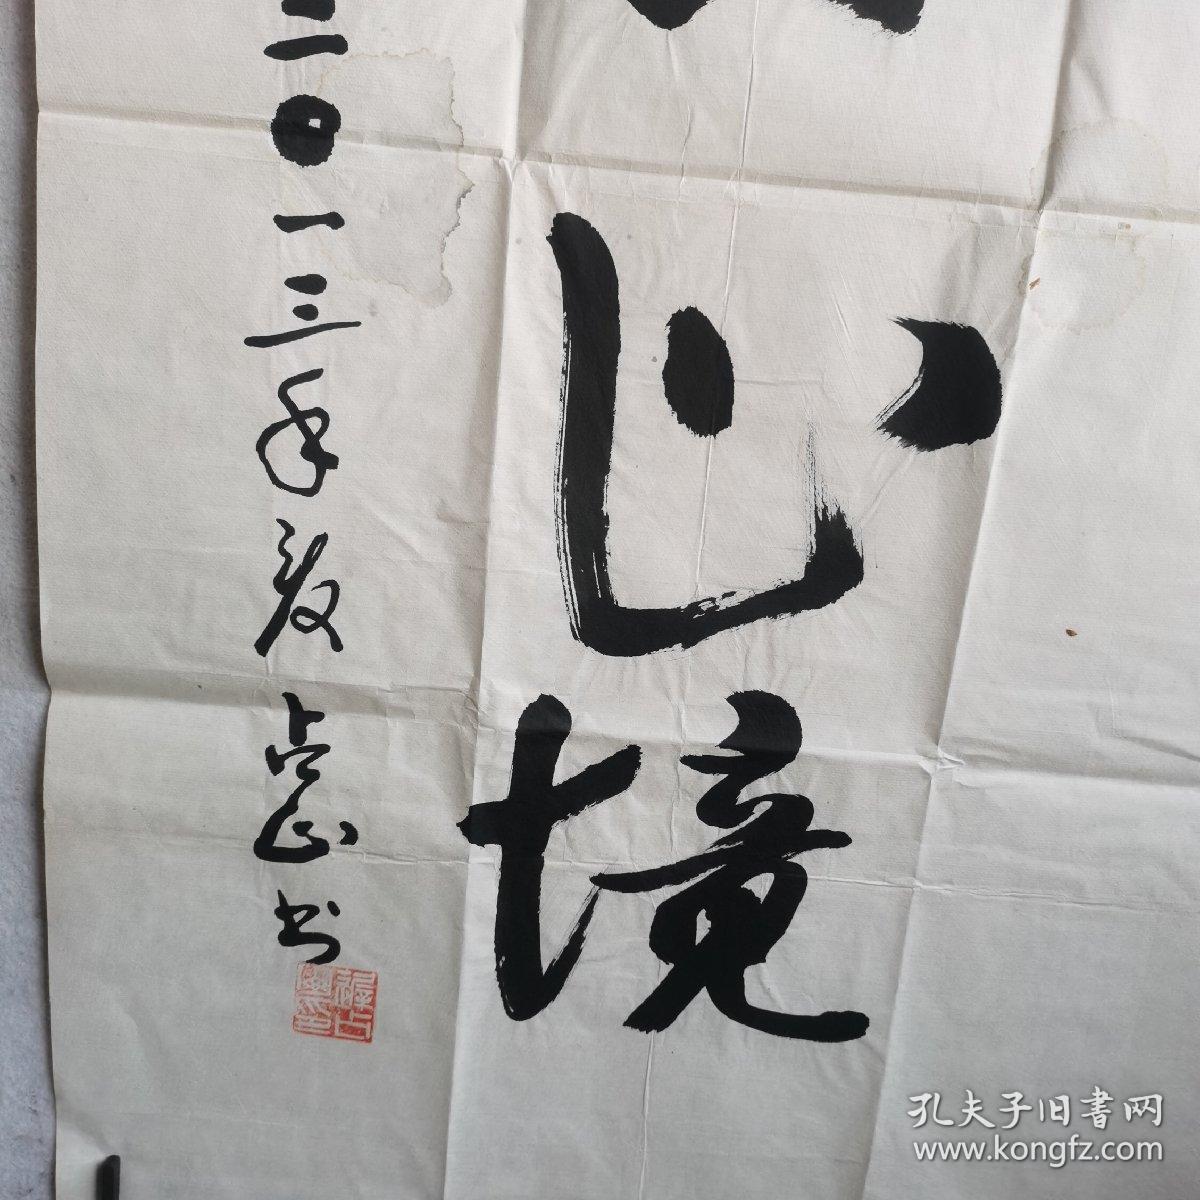 心境
二〇一三年夏占山书
孔夫子旧書网
www.kongfz.com